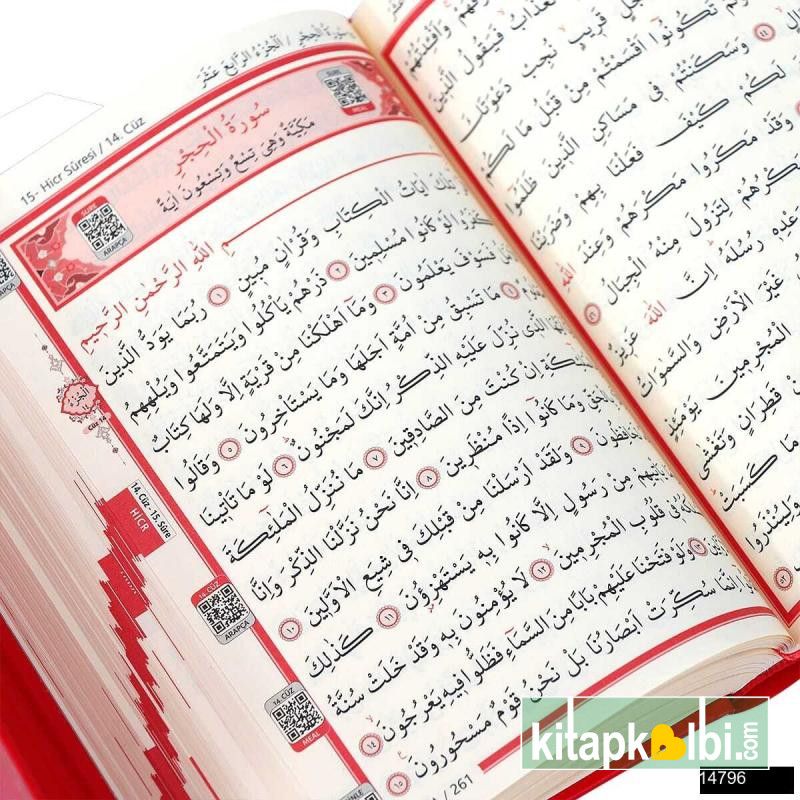 سُورَةُ الْحِجْرِ / اَلْجُزْءُ الرَّابِعَ عَشَرَ
15- Hicr Sûresi / 14. Cüz
SÛRE
MEAL
سُورَةُ الْحِجْرِ
مَكِّيَّةٌ وَهِيَ تِسْعٌ وَتِسْعُونَ اٰيَةً
SÛRE
ARAPÇA
اللّٰهِ الرَّحْمٰنِ الرَّحِيمِ
تِلْكَ اٰيَاتُ الْكِتَابِ وَقُرْاٰنٍ مُبِينٍ ١ رُبَمَا يَوَدُّ الَّذِينَ
كَفَرُوا لَوْ كَانُوا مُسْلِمِينَ ٢ ذَرْهُمْ يَأْكُلُوا وَيَتَمَتَّعُوا وَيُلْهِهِمُ
فَسَوْفَ يَعْلَمُونَ ٣ وَمَا اَهْلَكْنَا مِنْ قَرْيَةٍ اِلَّا وَلَهَا كِتَابٌ
مَا تَسْبِقُ مِنْ اُمَّةٍ اَجَلَهَا وَمَا يَسْتَأْخِرُونَ ٥ وَقَالُوا
الَّذِى نُزِّلَ عَلَيْهِ الذِّكْرُ اِنَّكَ لَمَجْنُونٌ ٦ لَوْ مَا تَأْتِينَا
اِنْ كُنْتَ مِنَ الصَّادِقِينَ ٧ مَا نُنَزِّلُ الْمَلٰٓئِكَةَ
وَمَا كَانُوا اِذًا مُنْظَرِينَ ٨ اِنَّا نَحْنُ نَزَّلْنَا الذِّكْرَ وَاِنَّا
٩ وَلَقَدْ اَرْسَلْنَا مِنْ قَبْلِكَ فِى شِيَعِ الْاَوَّلِينَ ١٠
مِنْ رَسُولٍ اِلَّا كَانُوا بِهِ يَسْتَهْزِؤُنَ ١١ كَذٰلِكَ
فِى قُلُوبِ الْمُجْرِمِينَ ١٢ لَا يُؤْمِنُونَ بِهِ وَقَدْ خَلَتْ سُنَّةُ
١٣ وَلَوْ فَتَحْنَا عَلَيْهِمْ بَابًا مِنَ السَّمَاءِ فَظَلُّوا فِيهِ يَعْرُجُونَ ١٤
سُكِّرَتْ اَبْصَارُنَا بَلْ نَحْنُ قَوْمٌ مَسْحُورُونَ ١٥
Cüz 14
14. Cüz - 15. Sûre
HICR
14. CÜZ
ARAPÇA
14. CÜZ
MEAL
261
قَرِيبٍ نُجِبْ دَعْوَتَكَ
تَكُونُوا اَقْسَمْتُمْ مِنْ قَبْلُ مَا لَكُمْ
وَسَكَنْتُمْ فِى مَسَاكِنِ الَّذِينَ ظَلَمُوا
لَكُمْ كَيْفَ فَعَلْنَا بِهِمْ وَضَرَبْنَا
وَقَدْ مَكَرُوا مَكْرَهُمْ وَعِنْدَ اللّٰهِ
مَكْرُهُمْ لِتَزُولَ مِنْهُ الْجِبَالُ
رُسُلَهُ اِنَّ اللّٰهَ عَزِيزٌ
غَيْرَ الْاَرْضِ وَالسَّمٰوَاتُ
الْمُجْرِمِينَ يَوْمَئِذٍ
قَطِرَانٍ وَتَغْشٰى
مَا كَسَبَتْ
وَلِيُنْذَرُوا
kitapkalbi.com
14796